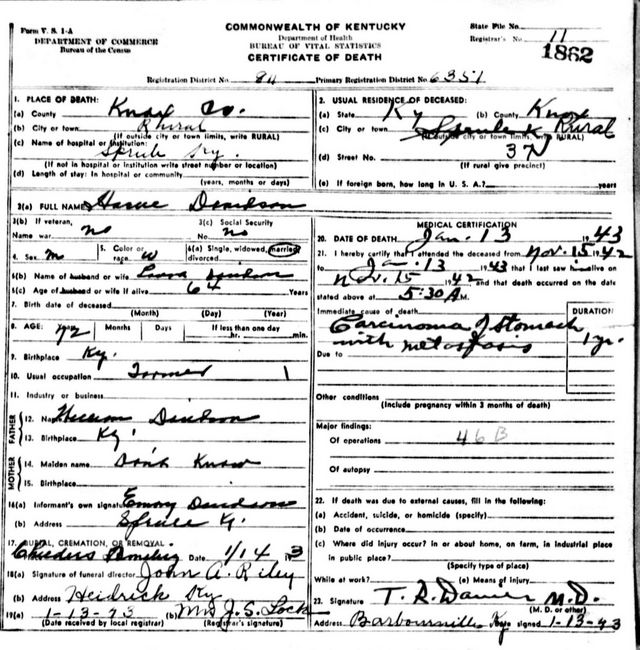 Form V. S. 1-A
DEPARTMENT OF COMMERCE
Bureau of the Census
COMMONWEALTH OF KENTUCKY
Department of Health
BUREAU OF VITAL STATISTICS
CERTIFICATE OF DEATH
State File No.
Registrar's No. 11
1862
Registration District No. 84 Primary Registration District No. 6351
1. PLACE OF DEATH:
(a) County Knox Co.
(b) City or town Rhural
(If outside city or town limits, write RURAL)
(c) Name of hospital or institution:
(If not in hospital or institution write street number or location)
(d) Length of stay: In hospital or community
(years, months or days)
2. USUAL RESIDENCE OF DECEASED:
(a) State Ky (b) County Knox
(c) City or town Rural
(If outside city or town limits, write RURAL)
(d) Street No.
(If rural give precinct)
(e) If foreign born, how long in U. S. A.? years
3(a) FULL NAME Davidson
3(b) If veteran, Name war no
3(c) Social Security No. no
4. Sex M 5. Color or race W 6(a) Single, widowed, married, divorced
6(b) Name of husband or wife Davidson
6(c) Age of husband or wife if alive 64 Years
7. Birth date of deceased
(Month) (Day) (Year)
8. AGE: 72 Months Days If less than one day
hr. min.
9. Birthplace Ky.
10. Usual occupation Farmer 1
11. Industry or business
FATHER
12. Name Davidson
13. Birthplace Ky.
MOTHER
14. Maiden name Dont Know
15. Birthplace
16(a) Informant's own signature Emory Davidson
(b) Address Ky.
17. BURIAL, CREMATION, OR REMOVAL
Childers Cemetery Date 1/14 3
18(a) Signature of funeral director John A. Riley
(b) Address Heidrick Ky
19(a) 1-13-43 (b) Mrs J. S. Lock
(Date received by local registrar) (Registrar's signature)
MEDICAL CERTIFICATION
20. DATE OF DEATH Jan. 13 1943
21. I hereby certify that I attended the deceased from Nov. 15 1942
to Jan. 13 1943 that I last saw him alive on
Nov. 15 1942 and that death occurred on the date
stated above at 5:30 A M.
Immediate cause of death DURATION
Carcinoma of Stomach
with metastasis 1 yr.
Due to
Other conditions
(Include pregnancy within 3 months of death)
Major findings:
Of operations 46B
Of autopsy
22. If death was due to external causes, fill in the following:
(a) Accident, suicide, or homicide (specify)
(b) Date of occurrence
(c) Where did injury occur? in or about home, on farm, in industrial place
in public place?
(Specify type of place)
While at work? (e) Means of injury
23. Signature T. R. M.D.
(M. D. or other)
Address Barbourville Ky Date signed 1-13-43